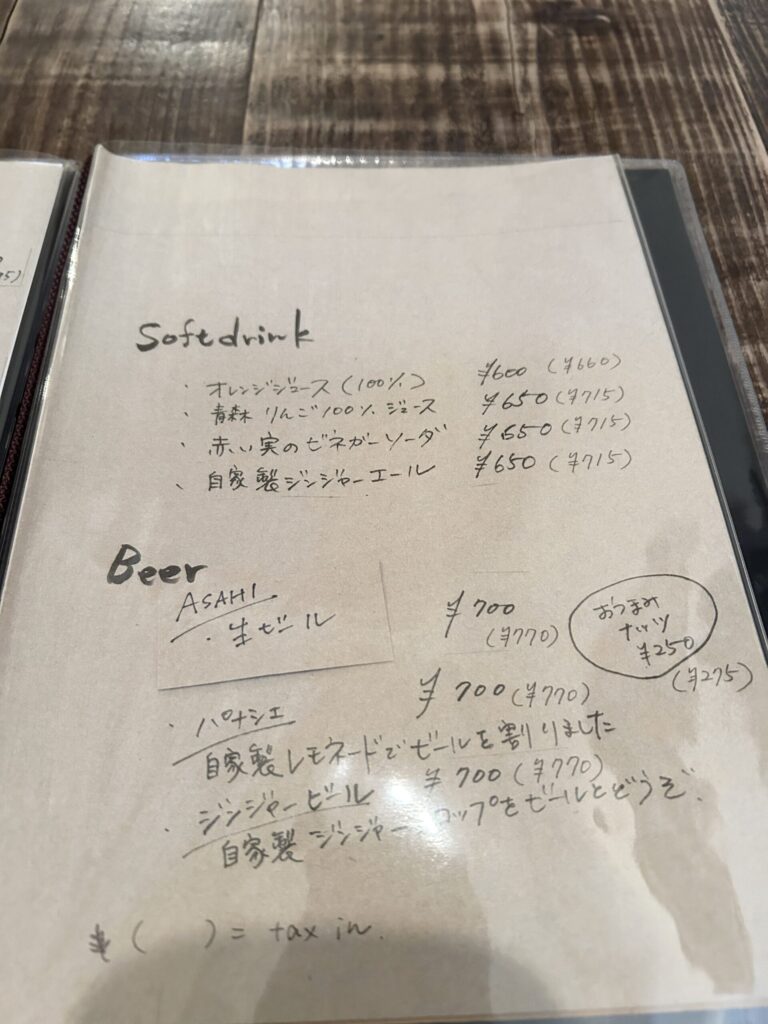 95)
Softdrink
・オレンジジュース(100%) ¥600 (¥660)
・青森りんご100%ジュース ¥650(¥715)
・赤い実のビネガーソーダ ¥650(¥715)
、自家製ジンジャーエール ¥650 (¥715)
Beer
ASAHI
・生ビール ¥700
(¥770)
おつまみ
ナッツ
¥250
(¥275)
・パナシェ ¥700(¥770)
自家製レモネードでビールを割りました
・ジンジャービール ¥700(¥770)
自家製ジンジャー ロップをビールとどうぞ.
( ) = tax in.